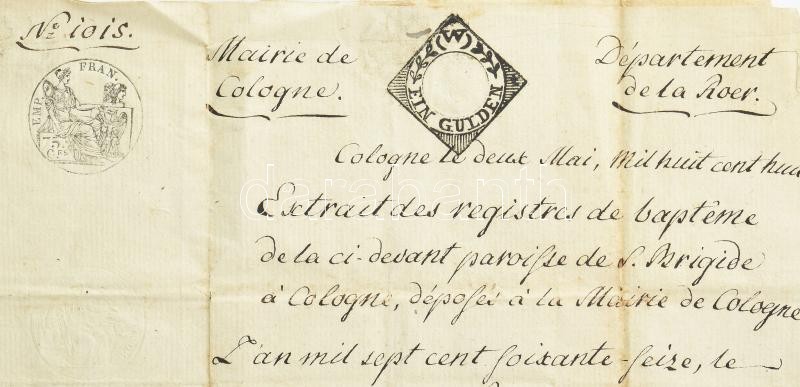 No. 1015.
EMP. FRAN.
Mairie de
Cologne.
(W)
EIN GULDEN
Département
de la Roer.
Cologne le deux Mai, mil huit cent huit
Extrait des registres de baptême
de la ci-devant paroisse de S. Brigide
à Cologne, déposés à la Mairie de Cologne
L'an mil sept cent soixante-seize, le
darabanth